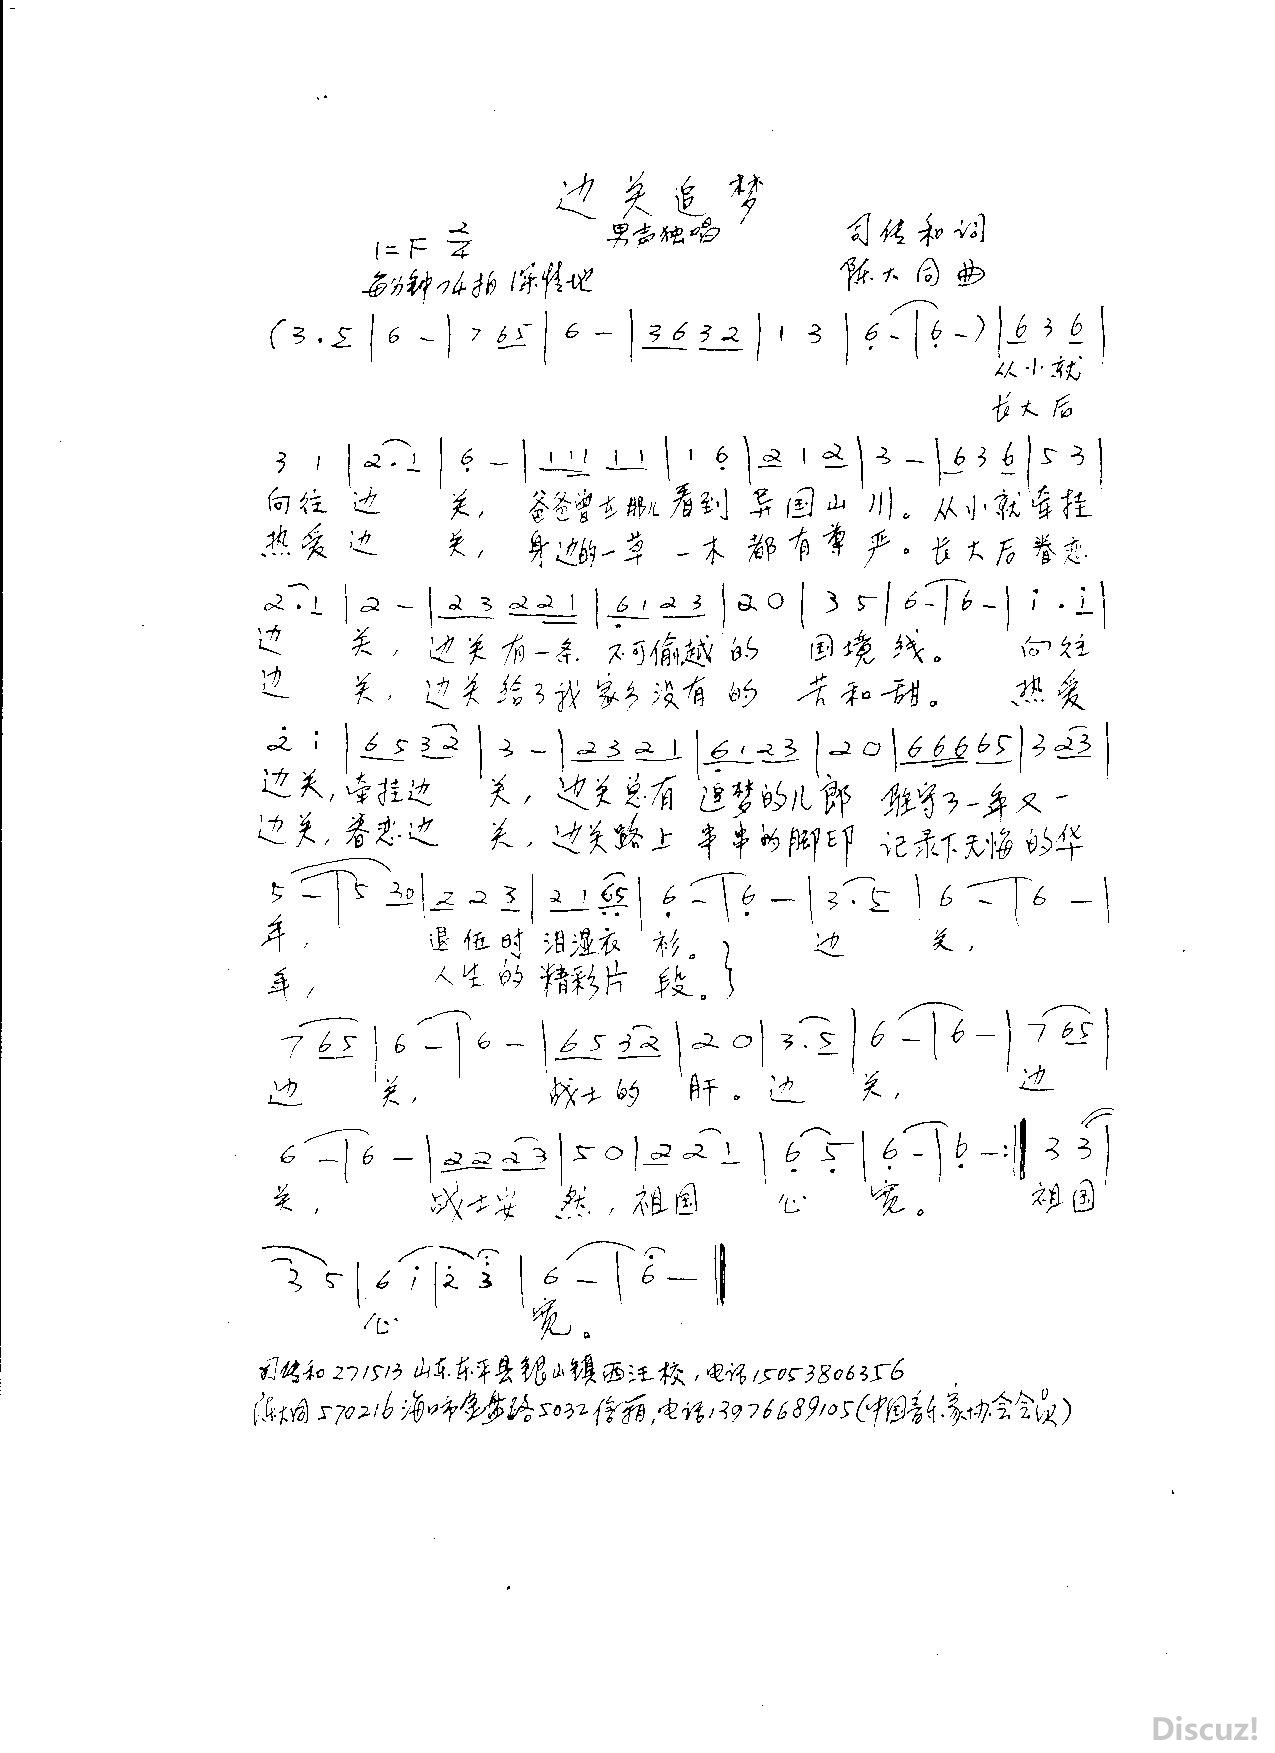 边关追梦
男声独唱
1=F 2/4
司传和词
每分钟74拍 深情地
陈大同曲
(3.5|6-|765|6-|3632|13|6-|6-)|636|
从小就
长大后
31|2.1|6-|11111|16|212|3-|636|53|
向往边关,爸爸曾在那儿看到异国山川。从小就牵挂
热爱边关,身边的一草一木都有尊严。长大后眷恋
2.1|2-|23221|6123|20|35|6-|6-|i.i|
边关,边关有一条不可偷越的国境线。向往
边关,边关给了我家乡没有的苦和甜。热爱
2i|6532|3-|2321|6123|20|66665|323|
边关,牵挂边关,边关总有追梦的儿郎 驻守了一年又一
边关,眷恋边关,边关路上串串的脚印 记录下无悔的华
5-|530|223|2165|6-|6-|3.5|6-|6-|
年,退伍时泪湿衣衫。边关,
年,人生的精彩片段。
765|6-|6-|6532|20|3.5|6-|6-|765|
边关,战士的肝。边关,边
6-|6-|2223|50|221|65|6-|6-:‖33|
关,战士安然,祖国心宽。祖国
35|6i|23|6-|6-‖
心宽。
司传和271513山东东平县银山镇西汪校,电话15053806356
陈大同570216海口市金盘路5032信箱,电话13976689105(中国音乐家协会会员)
Discuz!